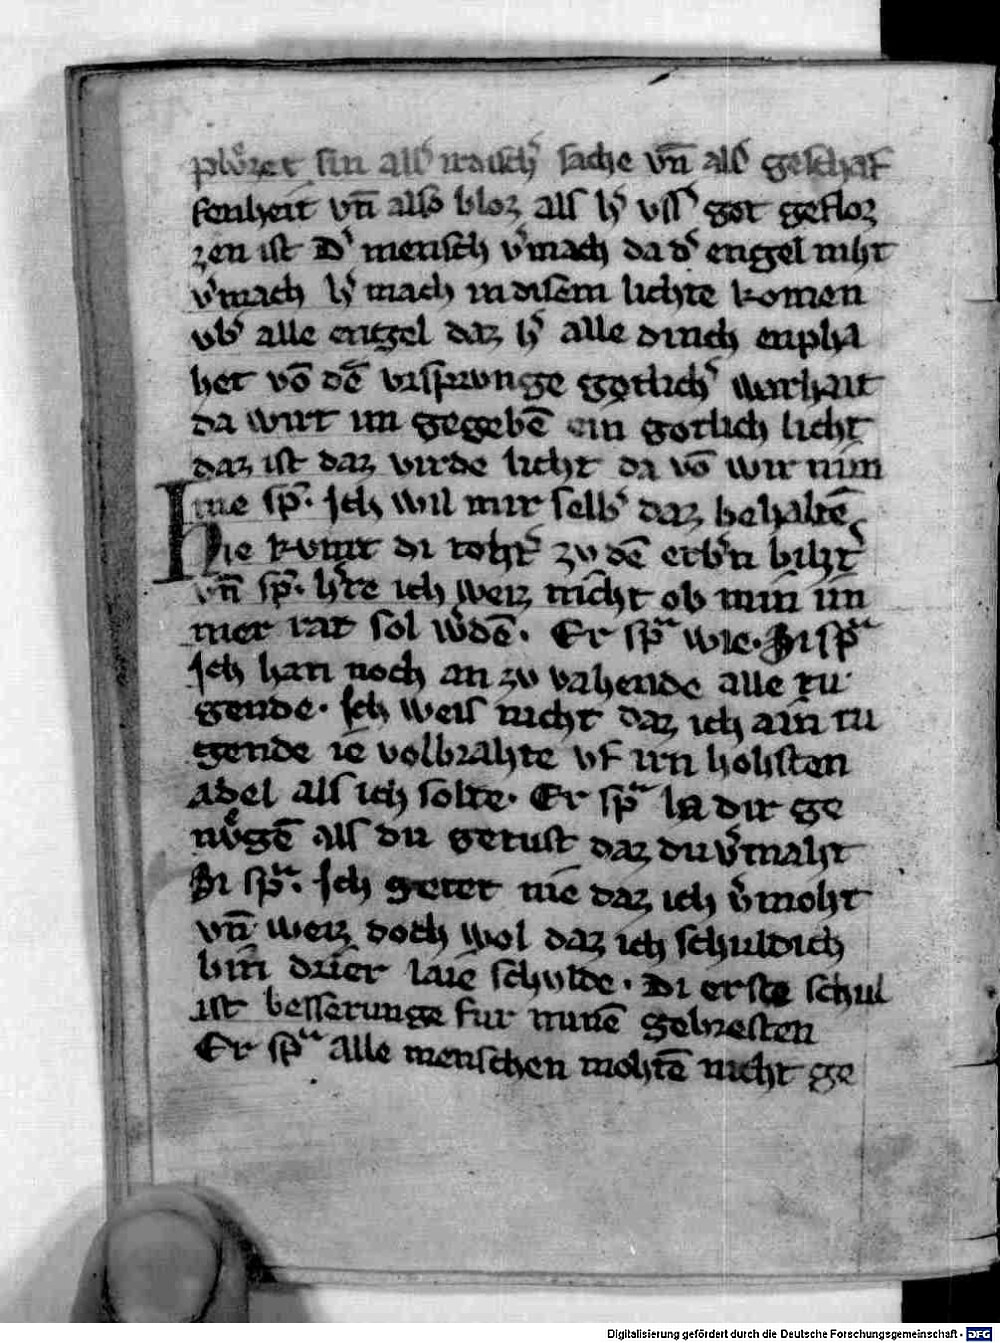 plozet sin alls irdisch' sache vn̄ als' geschaf
fenheit vn̄ also bloz als h' vss' got gefloz
zen ist D' mensch v'mach da d' engel niht
v'mach h' mach in disem lichte komen
vb' alle engel daz h' alle dinch enpha
het vō dē vrsprvnge gotlich' warhait
da wirt im gegebē ein gotlich licht
daz ist daz virde licht da vō wir nim
me sp͛. Jch wil mir selb' daz behaltē
Hie kvmt di toht' zv dē erb'n biht'
vn̄ sp͛. h're ich weiz nicht ob min im
mer rat sol w'dē. Er spᵃ wie. Si spᵃ
Jch han noch an zv vahende alle tu
gende. Jch weis nicht daz ich ain tu
gende ie volbrahte vf irn hohsten
adel als ich solte. Er spᵃ la dir ge
nvͦgē als du getust daz du v'maht
Si spᵃ. Jch getet nie daz ich v'moht
vn̄ weiz doch wol daz ich schuldich
bin drier laie schvlde. Di erste schul
ist besserunge fur minē gebresten
Er spᵃ alle menschen mohtē nicht ge
Digitalisierung gefördert durch die Deutsche Forschungsgemeinschaft - DFG